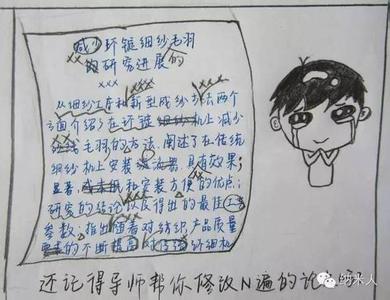 减少环锭细纱毛羽
的研究进展的
从细纱工序和新型成纱方法两个
方面介绍了在环锭细纱机上减少
毛羽的方法，阐述了在传统
细纱机上安装具有效果
显著，和安装方便的优点；
研究的结论以及得出的最佳工艺
参数；指出随着对纺织产品质量
要求的不断提高，对传统细纱机
还记得导师帮你修改N遍的论文吗
纳米人